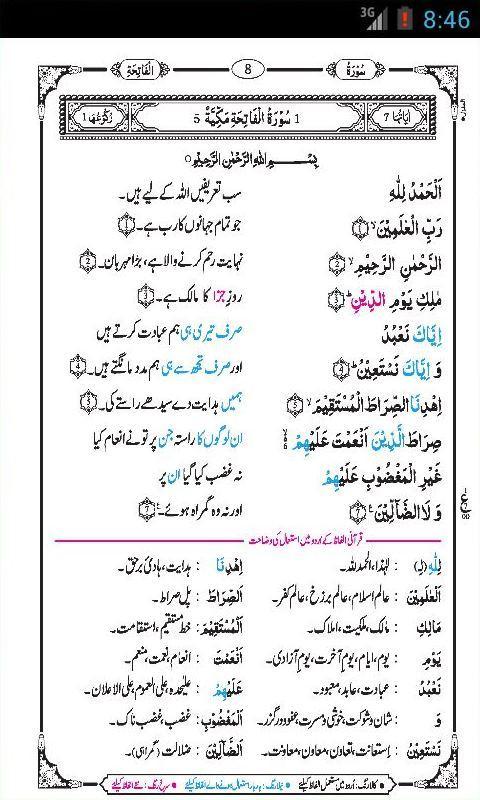 3G 8:46
سُوْرَةُ 8 اَلْفَاتِحَةِ
اٰيَاتُهَا 7 1 سُوْرَةُ الْفَاتِحَةِ مَكِّيَّةٌ 5 رُكُوْعُهَا 1
بِسْمِ اللّٰهِ الرَّحْمٰنِ الرَّحِيْمِ
اَلْحَمْدُ لِلّٰهِ سب تعریفیں اللہ کے لیے ہیں۔
رَبِّ الْعٰلَمِيْنَ ۙ 1 جو تمام جہانوں کا رب ہے۔ 1
الرَّحْمٰنِ الرَّحِيْمِ ۙ 2 نہایت رحم کرنے والا ہے، بڑا مہربان۔ 2
مٰلِكِ يَوْمِ الدِّيْنِ ؕ 3 روزِ جزا کا مالک ہے۔ 3
اِيَّاكَ نَعْبُدُ صرف تیری ہی ہم عبادت کرتے ہیں
وَ اِيَّاكَ نَسْتَعِيْنُ ؕ 4 اور صرف تجھ سے ہی ہم مدد مانگتے ہیں۔ 4
اِهْدِنَا الصِّرَاطَ الْمُسْتَقِيْمَ ۙ 5 ہمیں ہدایت دے سیدھے راستے کی۔ 5
صِرَاطَ الَّذِيْنَ اَنْعَمْتَ عَلَيْهِمْ ۙ ان لوگوں کا راستہ جن پر تو نے انعام کیا
غَيْرِ الْمَغْضُوْبِ عَلَيْهِمْ نہ غضب کیا گیا ان پر
وَ لَا الضَّآلِّيْنَ 7 اور نہ وہ گمراہ ہوئے۔ 7
قرآنی الفاظ کے اردو میں استعمال کی وضاحت
لِلّٰهِ (لِ) : لہٰذا، الحمد للہ۔ اِهْدِنَا : ہدایت، ہادیٔ برحق۔
اَلْعٰلَمِيْنَ : عالم اسلام، عالم برزخ، عالم کفر۔ الصِّرَاطَ : پل صراط۔
مَالِكِ : مالک، ملکیت، املاک۔ الْمُسْتَقِيْمَ : خط مستقیم، استقامت۔
يَوْمِ : یوم، ایام، یوم آخرت، یوم آزادی۔ اَنْعَمْتَ : انعام، نعمت، منعم۔
نَعْبُدُ : عبادت، عابد، معبود۔ عَلَيْهِمْ : علیحدہ، علی العموم، علی الاعلان۔
وَ : شان و شوکت، خوشی و مسرت، عفو و درگزر۔ الْمَغْضُوْبِ : غضب، غضب ناک۔
نَسْتَعِيْنُ : استعانت، تعاون، معاون، معاونت۔ الضَّآلِّيْنَ : ضلالت (گمراہی)۔